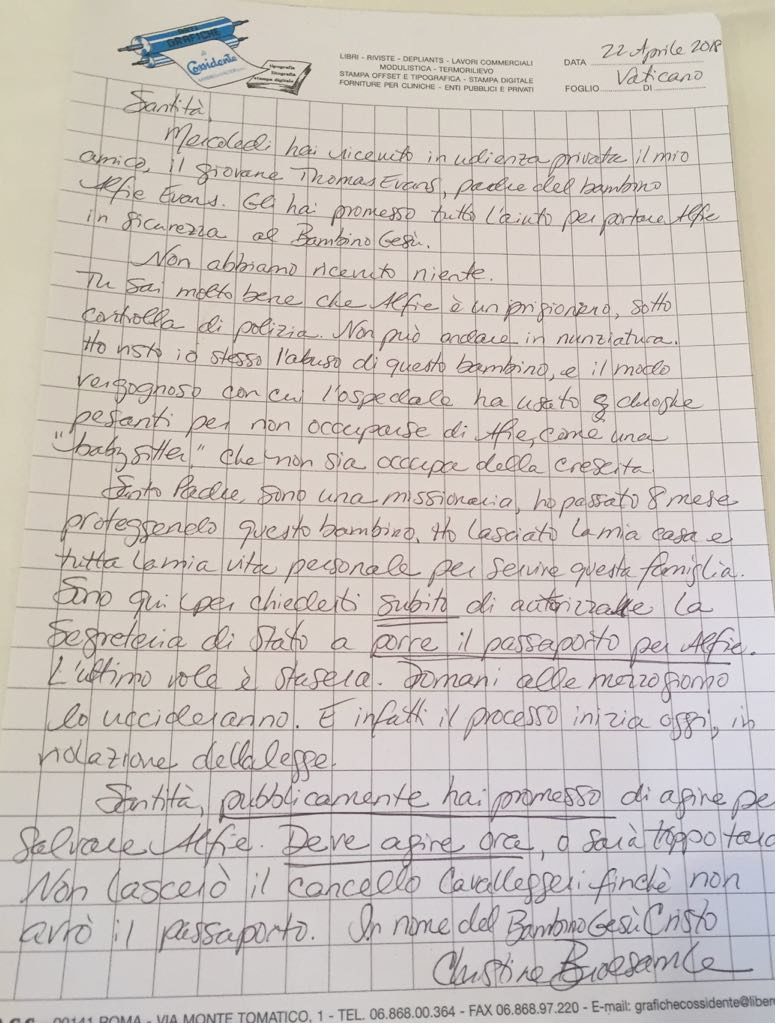 GRAFICHE
Cossidente
tipografia
litografia
stampa digitale
LIBRI - RIVISTE - DEPLIANTS - LAVORI COMMERCIALI
MODULISTICA - TERMORILIEVO
STAMPA OFFSET E TIPOGRAFICA - STAMPA DIGITALE
FORNITURE PER CLINICHE - ENTI PUBBLICI E PRIVATI
DATA 22 Aprile 2018
FOGLIO Vaticano DI
Santità,
Mercoledi hai ricevuto in udienza privata il mio
amico, il giovane Thomas Evans, padre del bambino
Alfie Evans. Gli hai promesso tutto l'aiuto per portare Alfie
in sicurezza al Bambino Gesù.
Non abbiamo ricevuto niente.
Tu sai molto bene che Alfie è un prigioniero, sotto
controlla di polizia. Non può andare in nunziatura.
Ho visto io stesso l'abuso di questo bambino, e il modo
vergognoso con cui l'ospedale ha usato droghe
pesanti per non occuparse di Alfie, come una
"baby sitter" che non sia occupa della crescita
Santo Padre sono una missionaria, ho passato 8 mese
proteggendo questo bambino. Ho lasciato la mia casa e
tutta la mia vita personale per servire questa famiglia.
Sono qui per chiederti subito di autorizzare la
Segreteria di Stato a porre il passaporto per Alfie.
L'ultimo vole è stasera. Domani alle mezzogiorno
lo uccideranno. E infatti il processo inizia oggi, in
violazione della legge.
Santità, pubblicamente hai promesso di agire pe
salvare Alfie. Deve agire ora, o sarà troppo tard
Non lascerò il cancello Cavalleggeri finchè non
avrò il passaporto. In nome del Bambino Gesù Cristo
Christine
00141 ROMA - VIA MONTE TOMATICO, 1 - TEL. 06.868.00.364 - FAX 06.868.97.220 - E-mail: grafichecossidente@liber